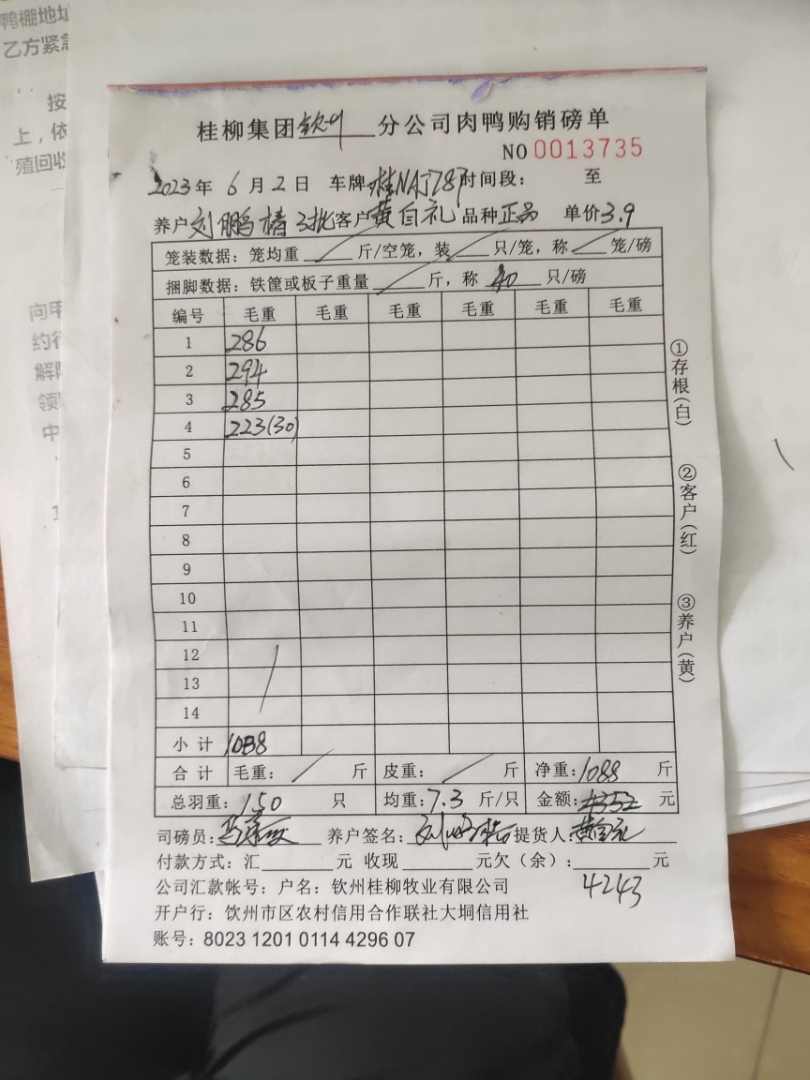 鸭棚地址
乙方紧急
按
上，依
殖回收
向甲
约行
解除
领
中
桂柳集团钦州分公司肉鸭购销磅单
NO 0013735
2023年6月2日 车牌:桂NAJ787时间段: 至
养户刘鹏椿3批客户黄自礼品种正品 单价3.9
笼装数据: 笼均重 / 斤/空笼，装 / 只/笼，称 / 笼/磅
捆脚数据: 铁筐或板子重量 / 斤，称 40 只/磅
编号 毛重 毛重 毛重 毛重 毛重 毛重
1 286
2 294
3 285
4 223(30)
5
6
7
8
9
10
11
12
13
14
小计 1088
合计 毛重: / 斤 皮重: / 斤 净重:1088 斤
总羽重: 150 只 均重:7.3 斤/只 金额:4352 元
司磅员: 养户签名: 提货人:黄自礼
付款方式: 汇 元 收现 元欠（余）: 元
4243
公司汇款帐号: 户名: 钦州桂柳牧业有限公司
开户行: 钦州市区农村信用合作联社大垌信用社
账号: 8023 1201 0114 4296 07
①存根(白)
②客户(红)
③养户(黄)